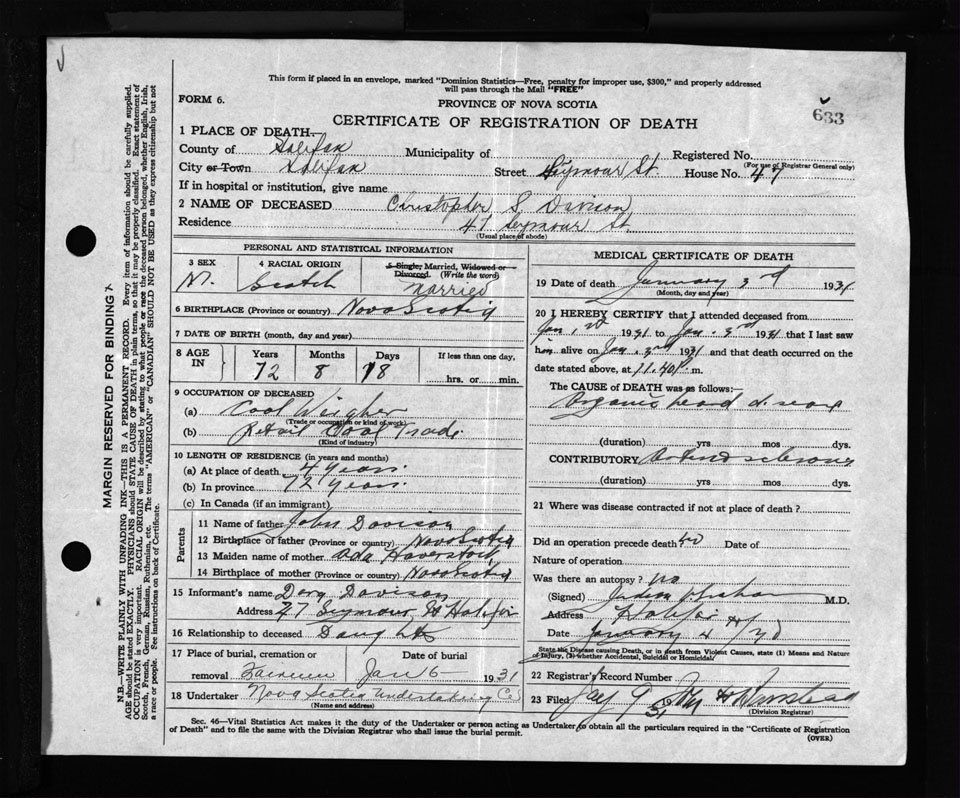 This form if placed in an envelope, marked "Dominion Statistics—Free, penalty for improper use, $300," and properly addressed
will pass through the Mail "FREE"
FORM 6.
PROVINCE OF NOVA SCOTIA
633
CERTIFICATE OF REGISTRATION OF DEATH
1 PLACE OF DEATH—
County of Halifax Municipality of Registered No.
(For use of Registrar General only)
City or Town Halifax Street Seymour St. House No. 47
If in hospital or institution, give name
2 NAME OF DECEASED Christopher S. Davison
Residence 47 Seymour St.
(Usual place of abode)
PERSONAL AND STATISTICAL INFORMATION
3 SEX 4 RACIAL ORIGIN 5 Single, Married, Widowed or
Divorced. (Write the word)
M. Scotch Married
6 BIRTHPLACE (Province or country) Nova Scotia
7 DATE OF BIRTH (month, day and year)
8 AGE IN Years Months Days If less than one day,
72 8 18 hrs. or min.
9 OCCUPATION OF DECEASED
(a) Coal Weigher
(Trade or occupation or kind of work)
(b) Retail Coal Trade
(Kind of industry)
10 LENGTH OF RESIDENCE (in years and months)
(a) At place of death 4 Years.
(b) In province 72 Years.
(c) In Canada (if an immigrant)
Parents
11 Name of father John Davison
12 Birthplace of father (Province or country) Nova Scotia
13 Maiden name of mother Ada Haverstock
14 Birthplace of mother (Province or country) Nova Scotia
15 Informant's name Davison
Address 47 Seymour St Halifax
16 Relationship to deceased Daughter
17 Place of burial, cremation or Date of burial
removal Fairview Jan 6 1931
18 Undertaker Nova Scotia Undertaking Co
(Name and address)
MEDICAL CERTIFICATE OF DEATH
19 Date of death January 3rd 1931
(Month, day and year)
20 I HEREBY CERTIFY that I attended deceased from
Jan. 1931 to Jan. 3rd 1931 that I last saw
him alive on Jan. 3rd 1931 and that death occurred on the
date stated above, at 11.40 P. m.
The CAUSE of DEATH was as follows:—
Organic heart disease
(duration) yrs mos dys.
CONTRIBUTORY Arteriosclerosis
(duration) yrs. mos. dys.
21 Where was disease contracted if not at place of death?
Did an operation precede death? no Date of
Nature of operation
Was there an autopsy? no
(Signed) M.D.
Address Halifax
Date January 4
State the Disease causing Death, or in death from Violent Causes, state (1) Means and Nature
of Injury, (2) whether Accidental, Suicidal or Homicidal.
22 Registrar's Record Number 7
23 Filed 9 1931
(Division Registrar)
Sec. 46—Vital Statistics Act makes it the duty of the Undertaker or person acting as Undertaker to obtain all the particulars required in the "Certificate of Registration
of Death" and to file the same with the Division Registrar who shall issue the burial permit.
(OVER)
MARGIN RESERVED FOR BINDING
N.B.—WRITE PLAINLY WITH UNFADING INK—THIS IS A PERMANENT RECORD. Every item of information should be carefully supplied.
AGE should be stated EXACTLY. PHYSICIANS should STATE CAUSE OF DEATH in plain terms, so that it may be properly classified. Exact statement of
OCCUPATION is very important. RACIAL ORIGIN will be described by stating to what people or race the deceased person belonged, whether English, Irish,
Scotch, French, German, Russian, Ruthenian, etc. The terms "AMERICAN" or "CANADIAN" SHOULD NOT BE USED as they express citizenship but not
a race or people. See instructions on back of Certificate.